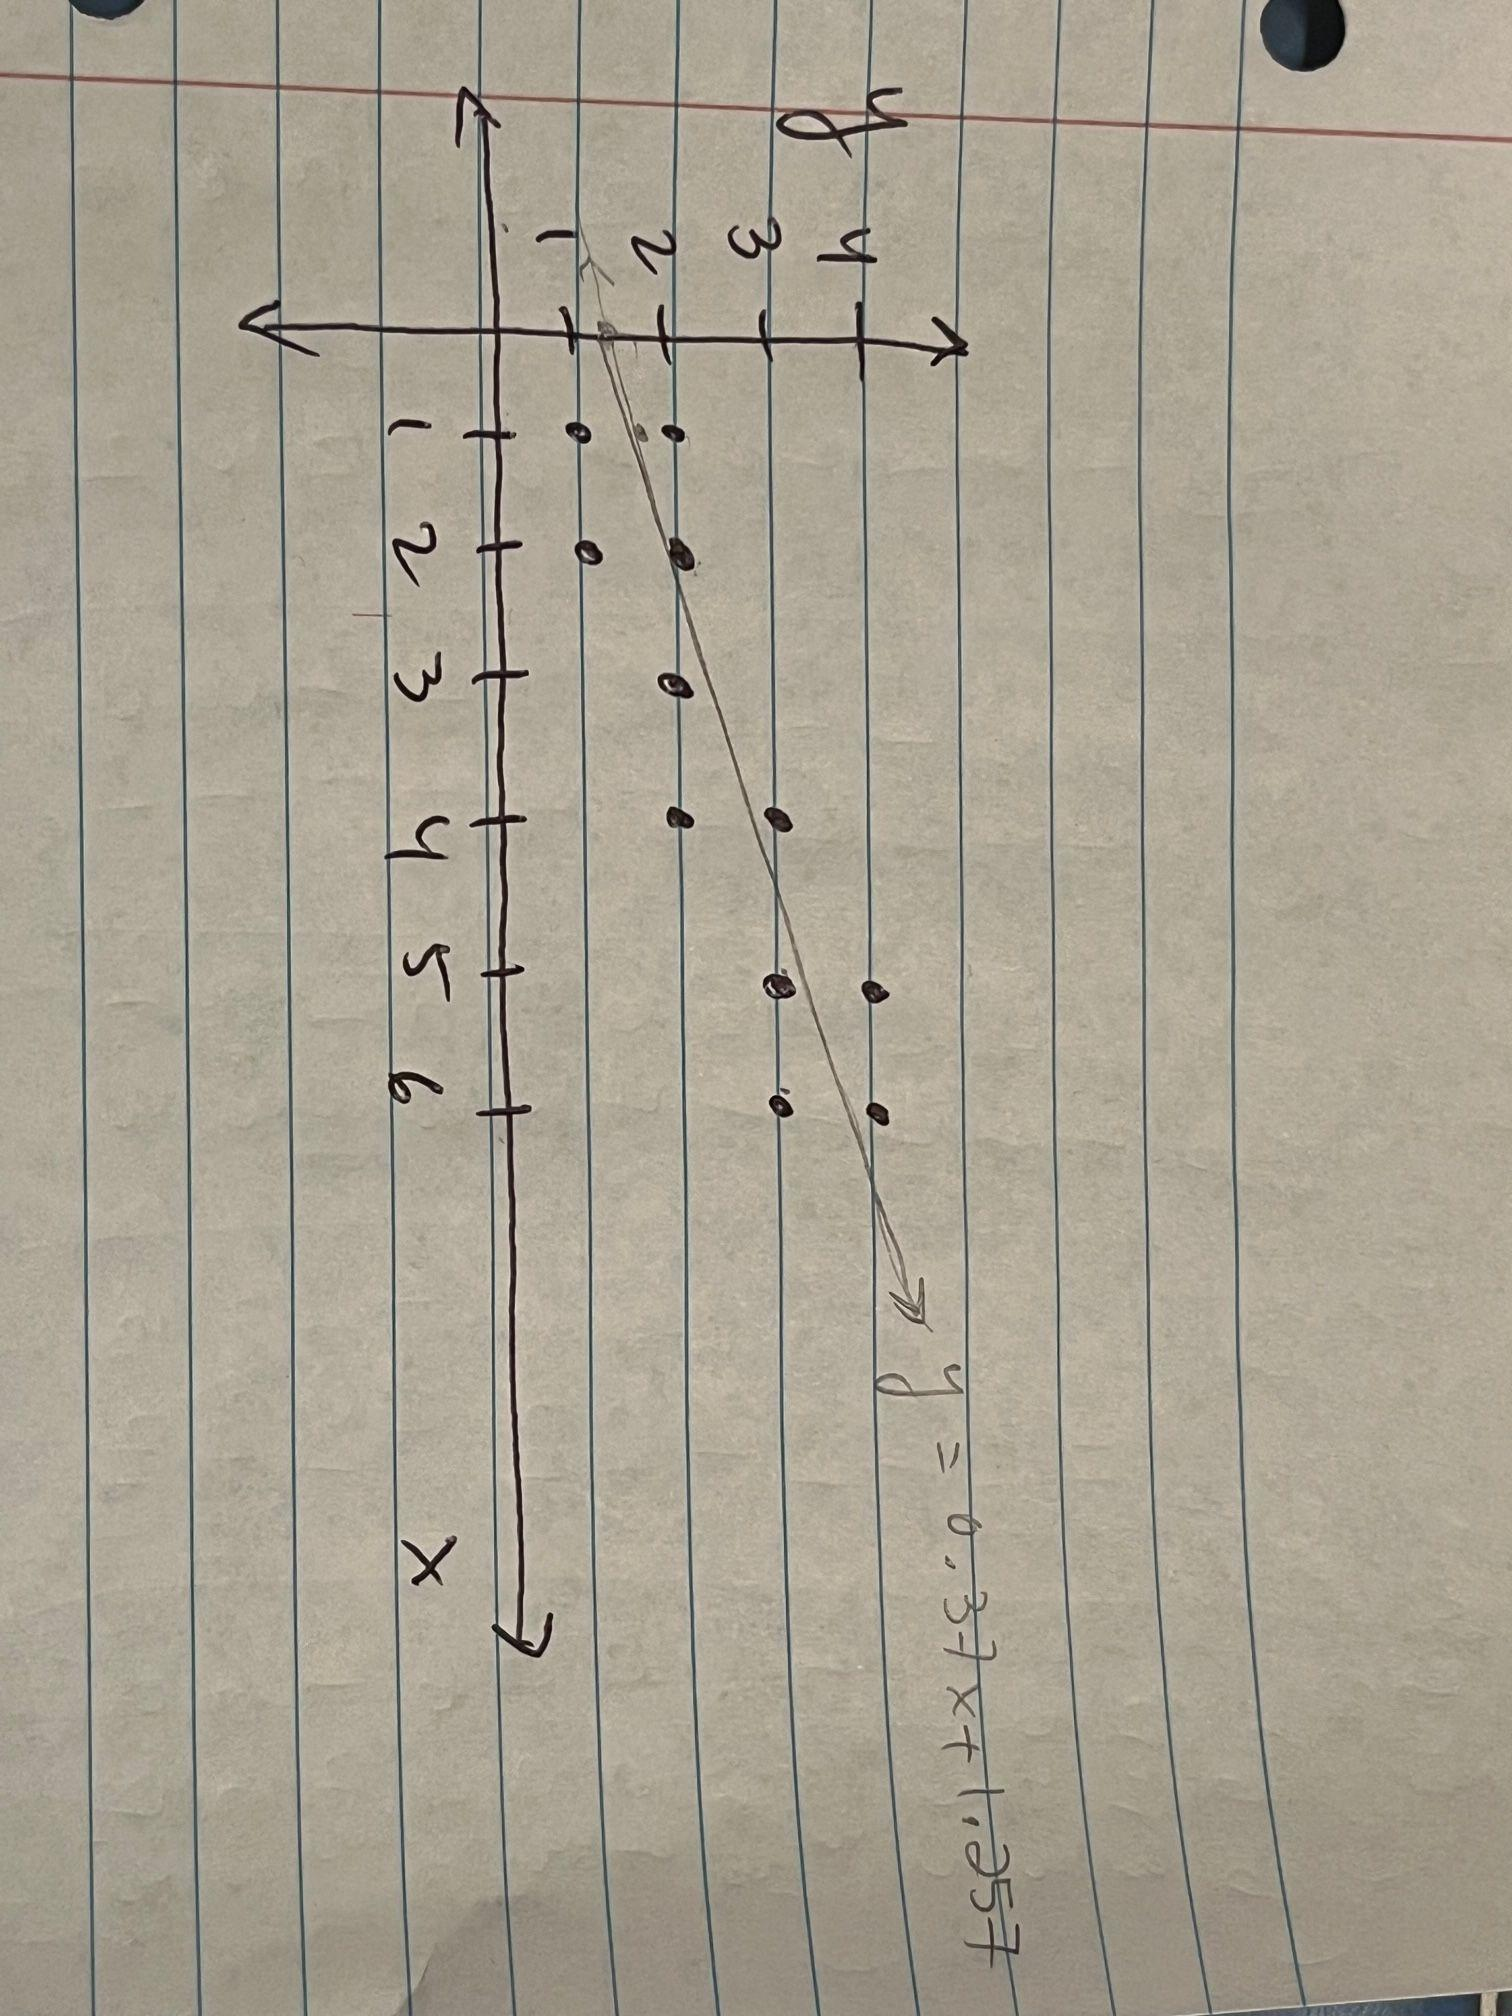 y
4
3
2
1
1 2 3 4 5 6
x
y = 0.37x+1.257